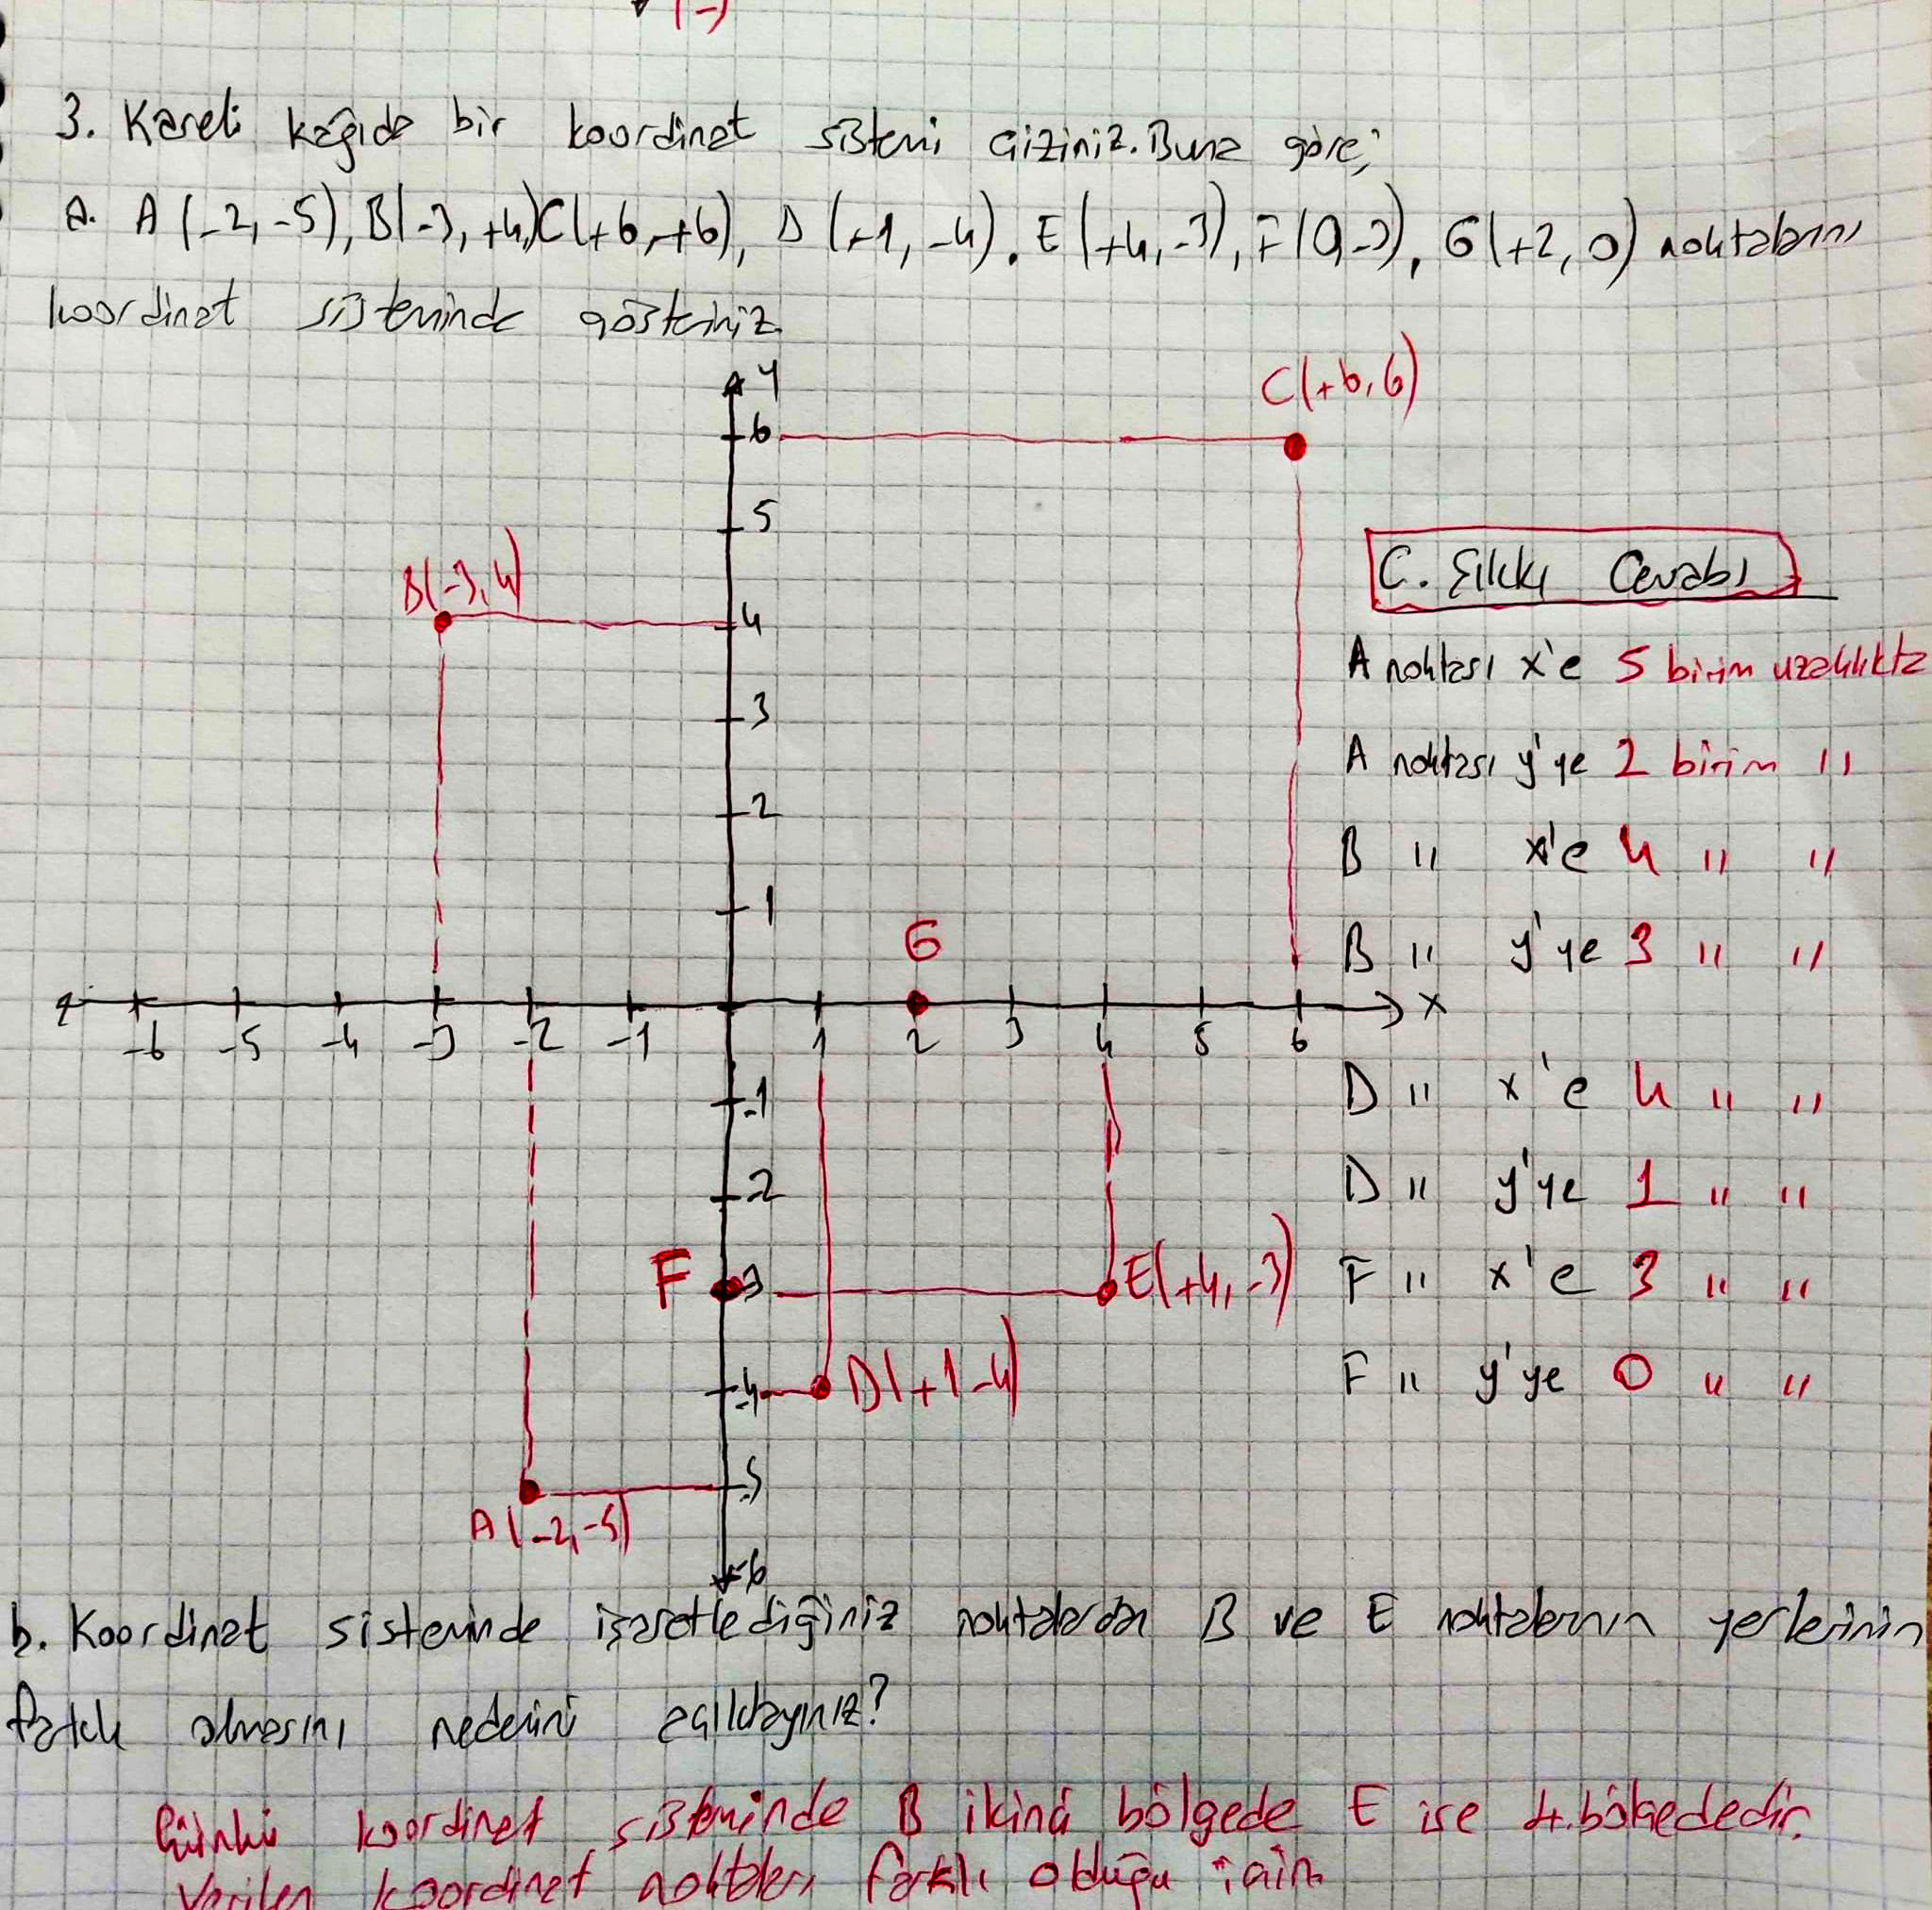 (-)
3. Kareli kağıda bir koordinat sistemi çiziniz. Buna göre;
a. A (-2,-5), B(-3,+4), C(+6,+6), D (+1,-4). E (+4,-3), F(0,-3), G(+2,0) noktalarını
koordinat sisteminde gösteriniz.
y
C(+6,6)
6
5
B(-3,4)
4
3
2
1
G
-6 -5 -4 -3 -2 -1 1 2 3 4 5 6 x
-1
-2
F -3 E(+4,-3)
-4 D(+1-4)
-5
A(-2,-5)
-6
C. Şıkkı Cevabı
A noktası x'e 5 birim uzaklıkta
A noktası y'ye 2 birim "
B " x'e 4 " "
B " y'ye 3 " "
D " x'e 4 " "
D " y'ye 1 " "
F " x'e 3 " "
F " y'ye 0 " "
b. Koordinat sisteminde işaretlediğiniz noktalardan B ve E noktalarının yerlerinin
farklı olmasını nedenini açıklayınız?
Çünkü koordinat sisteminde B ikinci bölgede E ise 4.bölgededir.
Verilen koordinat noktaları farklı olduğu için